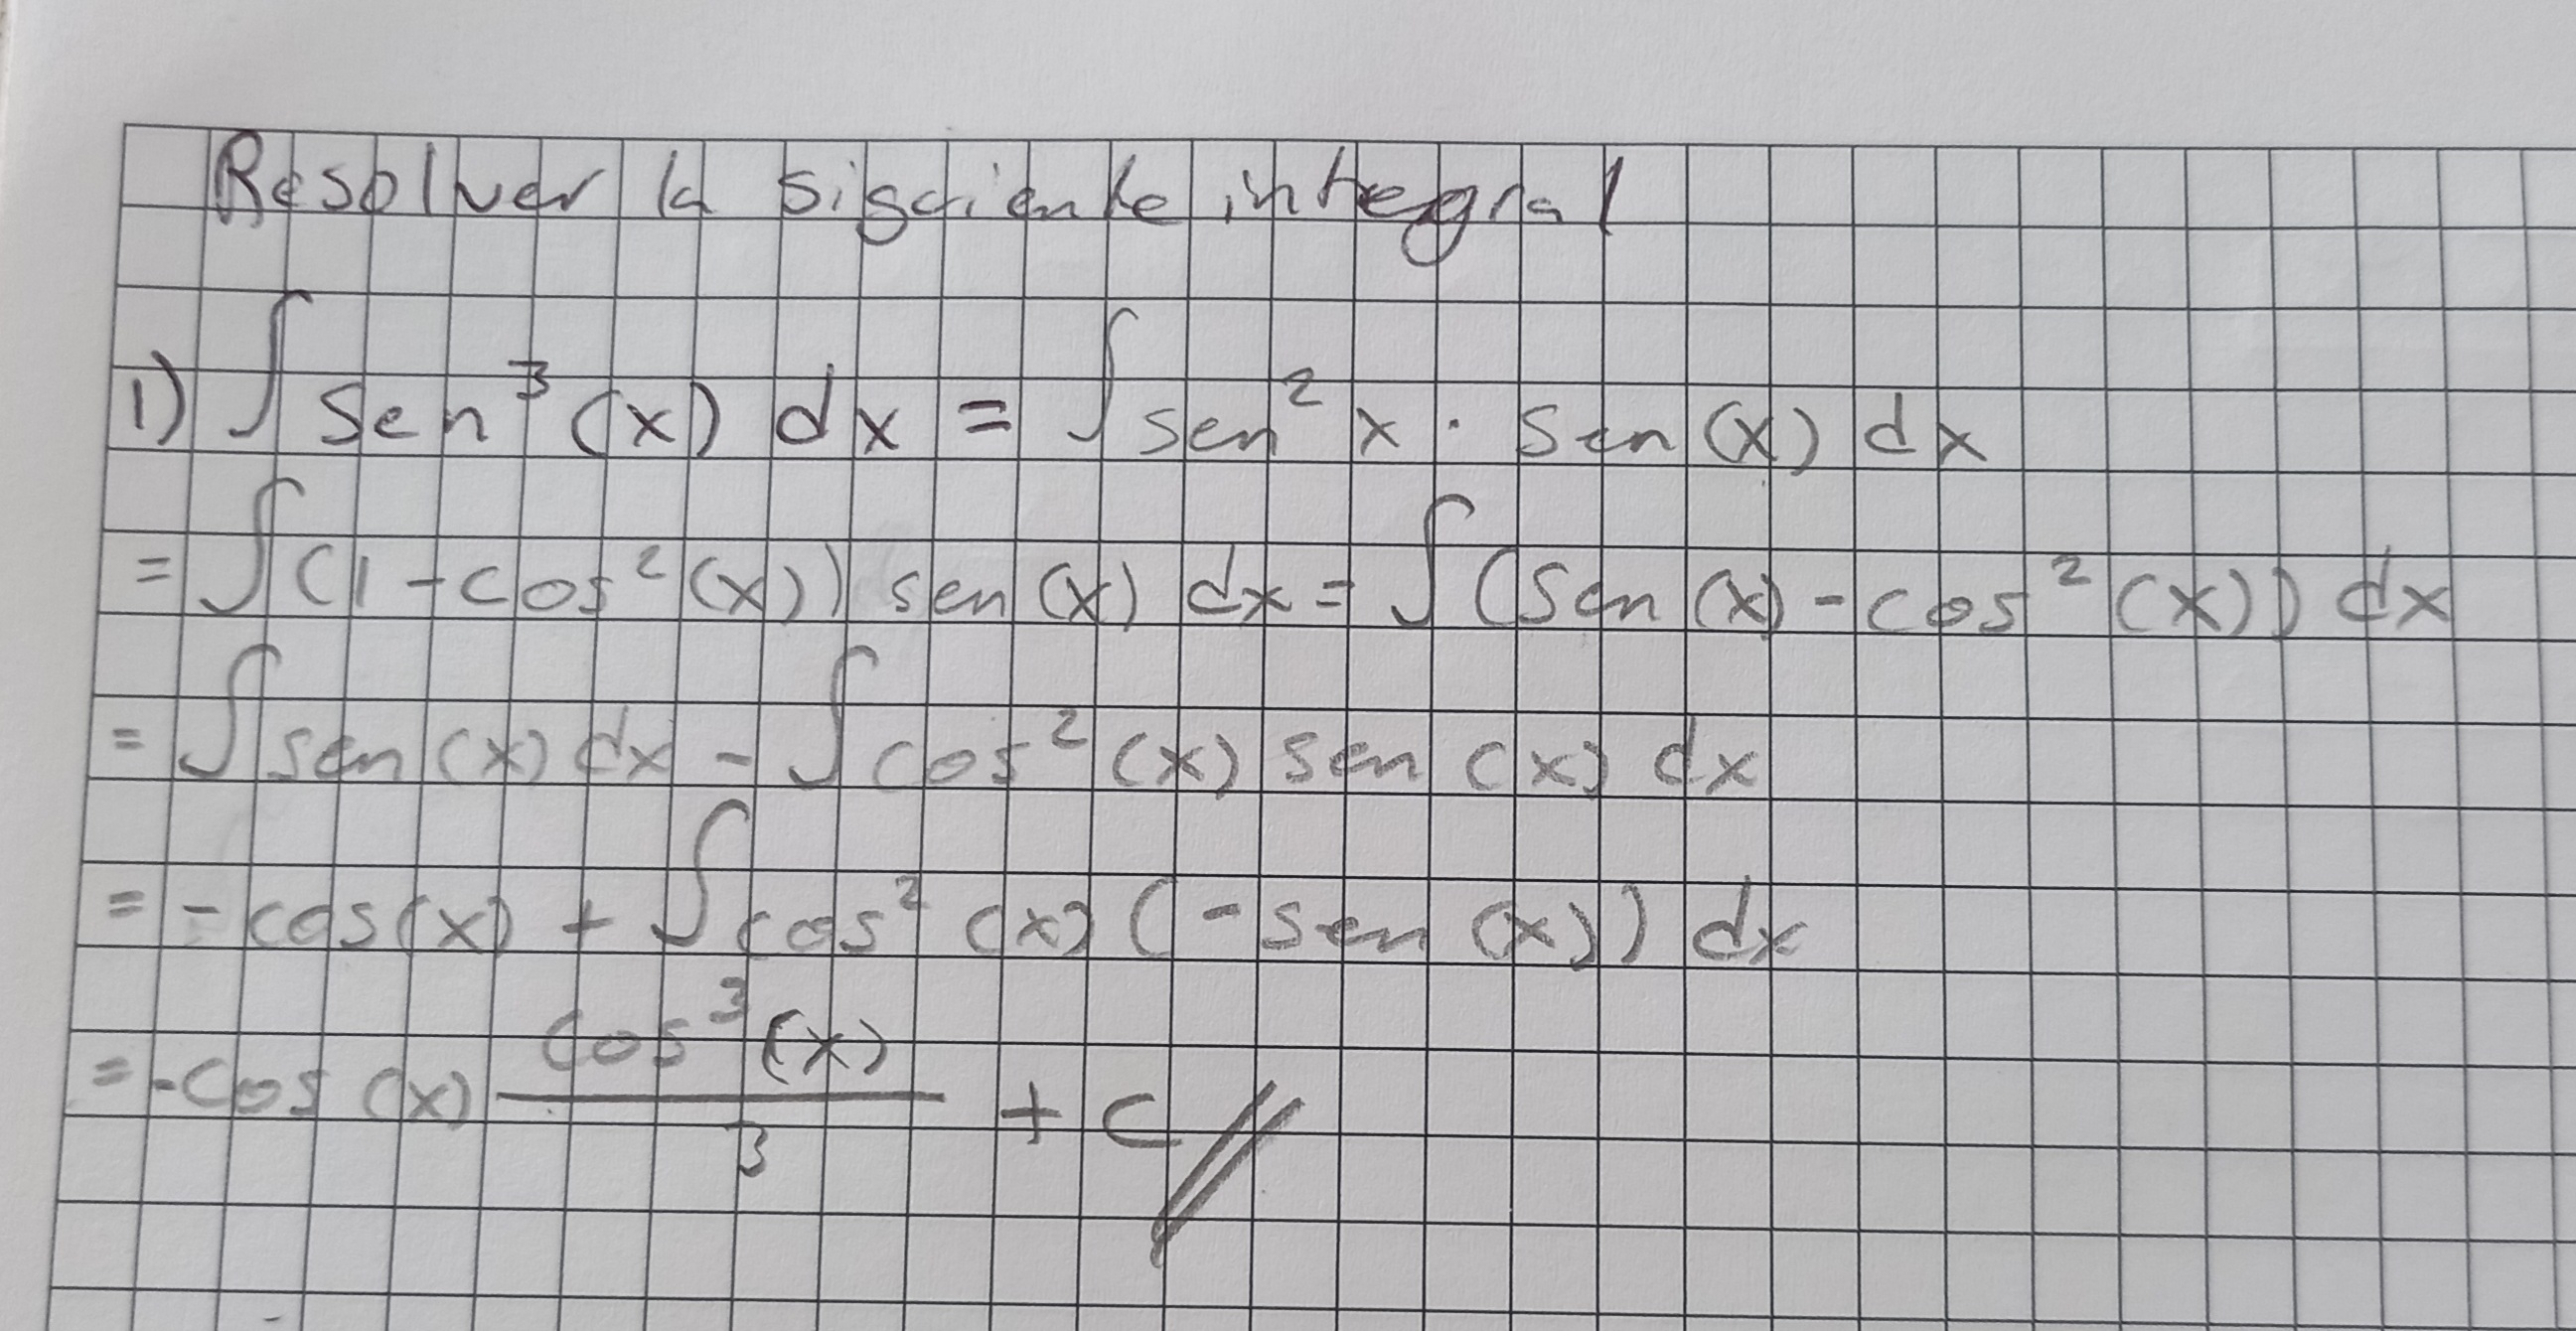 Resolver la siguiente integral
1) ∫ Sen³ (x) dx = ∫ sen² x · Sen (x) dx
= ∫ (1 - cos² (x)) sen (x) dx = ∫ (Sen (x) - cos² (x)) dx
= ∫ sen (x) dx - ∫ cos² (x) sen (x) dx
= - cos (x) + ∫ cos² (x) (- sen (x)) dx
= - Cos (x) cos³ (x) / 3 + C //